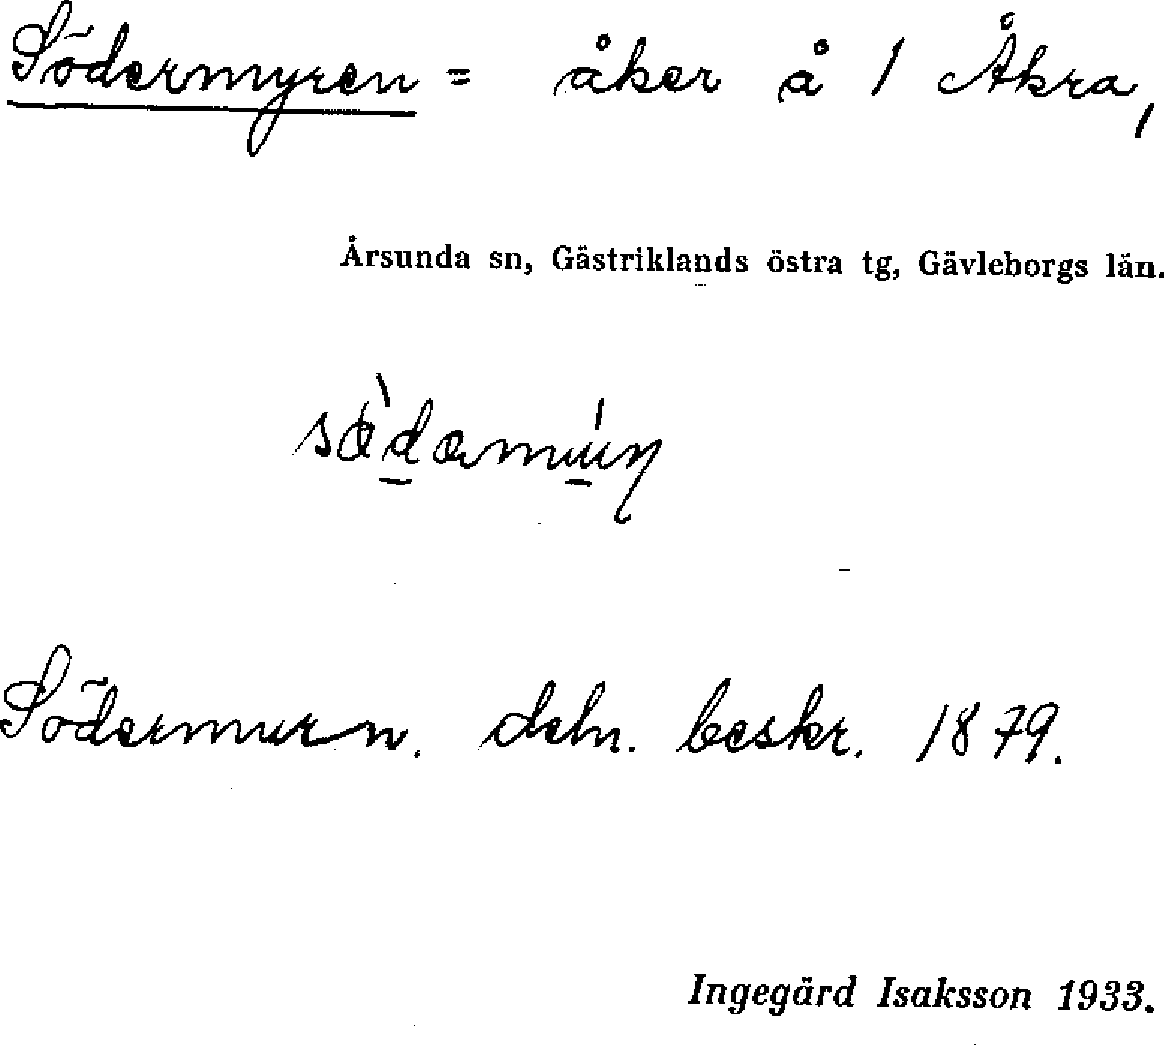 Södermyren = åker å 1 Åkra,
Årsunda sn, Gästriklands östra tg, Gävleborgs län.
Södermurn. deln. beskr. 1879.
Ingegärd Isaksson 1933.